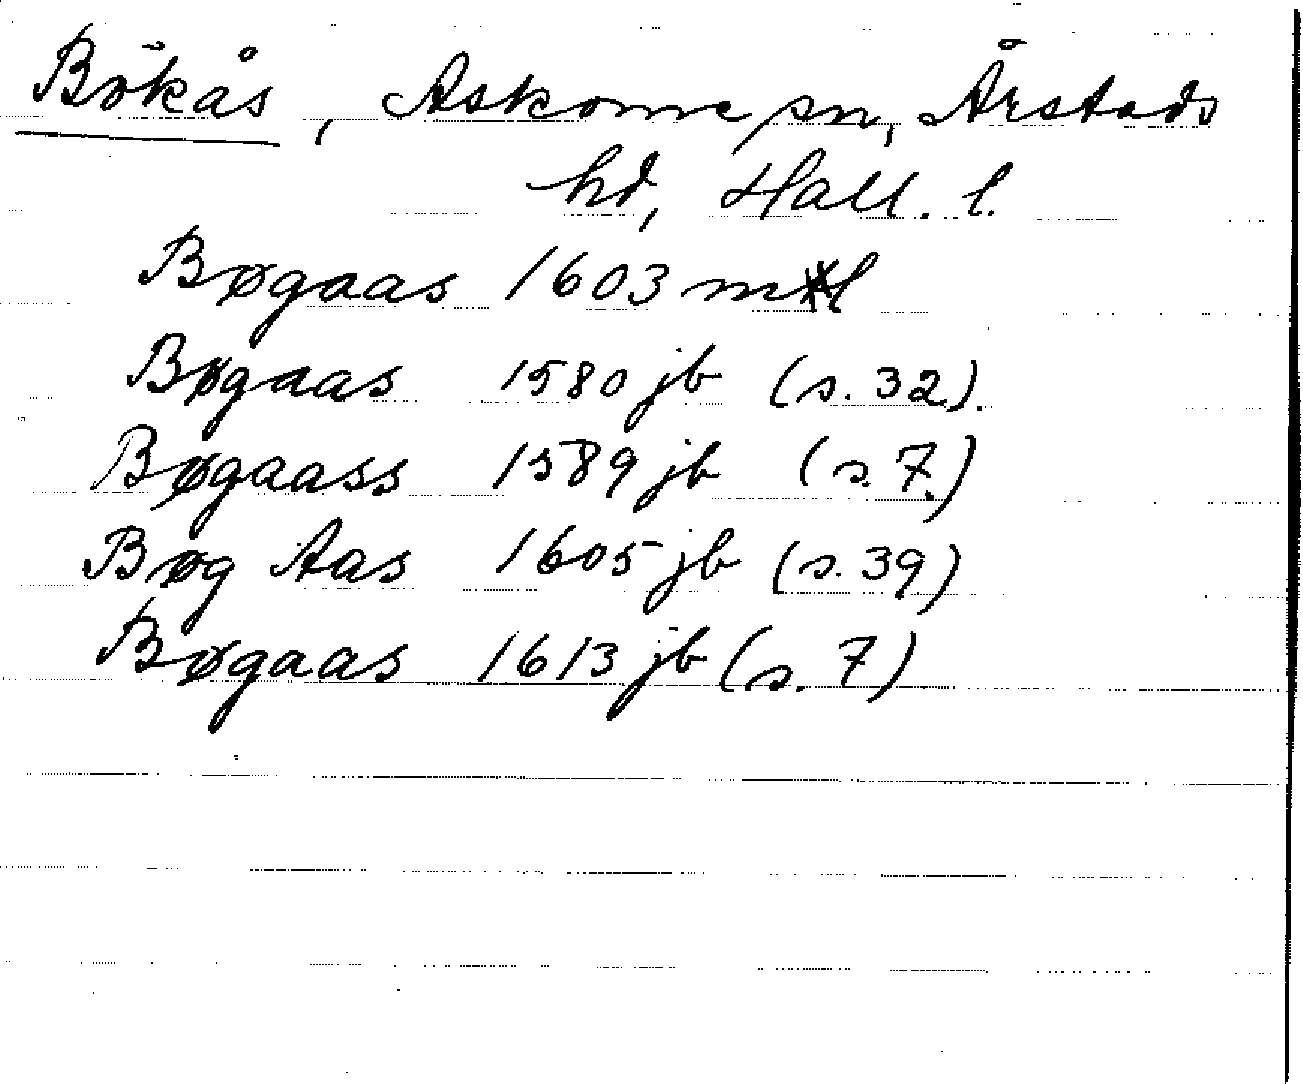 Bökås, Askome sn, Årstads
hd, Hall. l.
Bøgaas 1603 ml
Bøgaas 1580 jb (s. 32).
Bøgaass 1589 jb (s. 7.)
Bøg Aas 1605 jb (s. 39)
Bøgaas 1613 jb (s. 7)